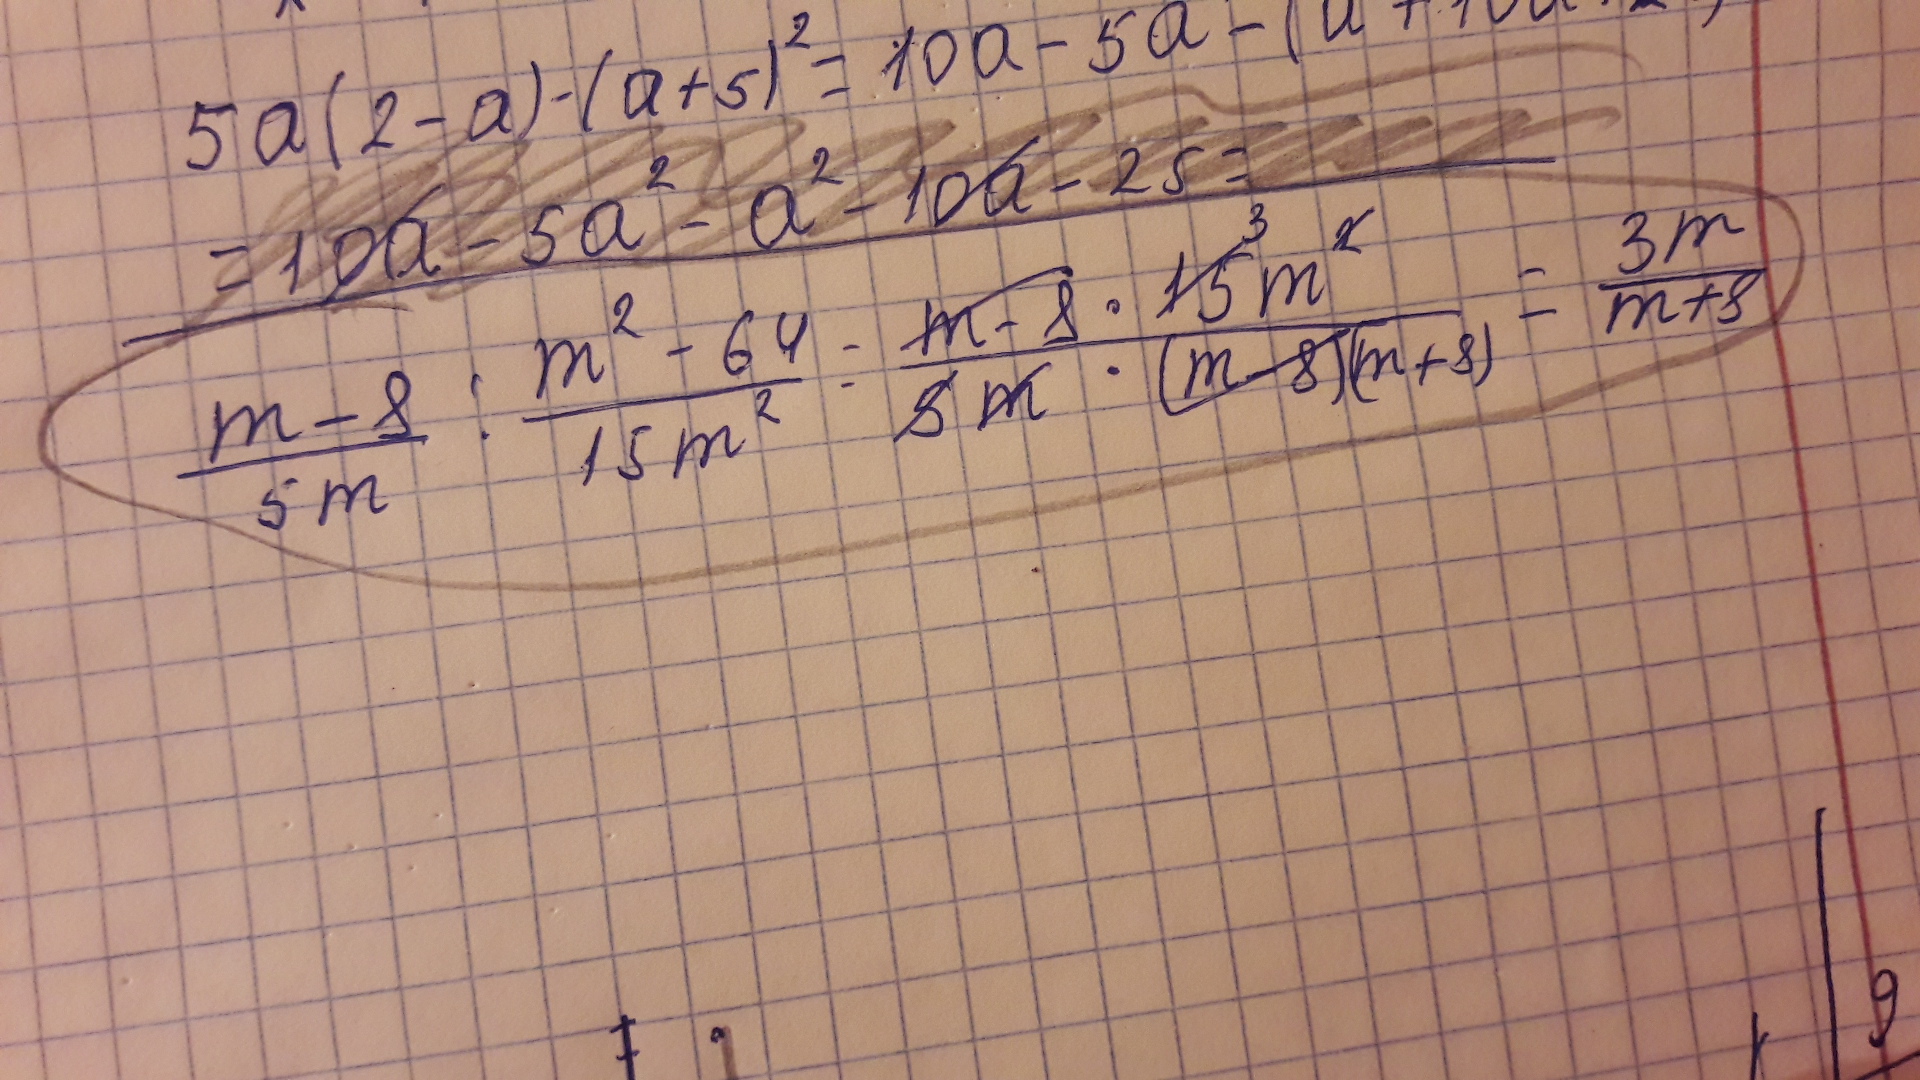 5a(2-a)-(a+5)²=10a-5a-(a+10a
=10a-5a²-a²-10a-25=
(m-8)/(5m) : (m²-64)/(15m²) = (m-8·15³m²)/(5m·(m-8)(m+8)) = 3m/(m+8)
9